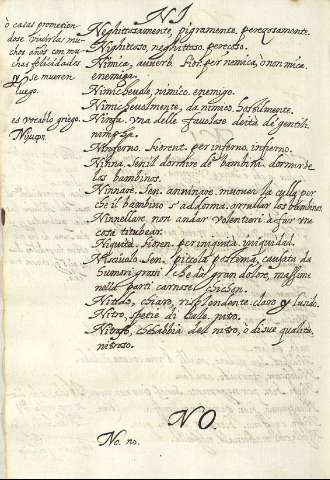 NI
ò casas prometien
dose viuirlas mu
chos años con mu
chas felicidades
y se mueren
luego.
es vocablo griego.
Νύμφη
Neghittosamente pigramente. pereçosamente.
Neghitoso, neghittoso, pereçoso.
Nimica, auuerb. Fior. per nemica, ò non mica.
enemiga.
Nimicheuole, nimico. enemigo.
Nimicheuolmente, da nimico. hostilmente.
Ninfa vna delle fauolose deità de gentili.
nimpha.
Ninferno. Fiorent. per inferno. infierno.
Ninna. Sen. il dormire de bambini. dormir de
los bambinos.
Ninnare. Sen. anninare. muouer la culla per
che il bambino s'addorma. arrullar los bambinos.
Ninnellare. non andar volentieri à far vna
cosa. titubear.
Niquità. Fioren. per iniquità. iniquidad.
Nisciuolo. Sen. picciola postema, causata da
humori grossi che dà gran dolore, massime
nelle parti carnose. chichon.
Nitido, chiaro, risplendente. claro y luzido.
Nitro, spetie di sale. nitro.
Nitroso, che habbia del nitro, ò di sue qualità.
nitroso.
NO.
No. no.